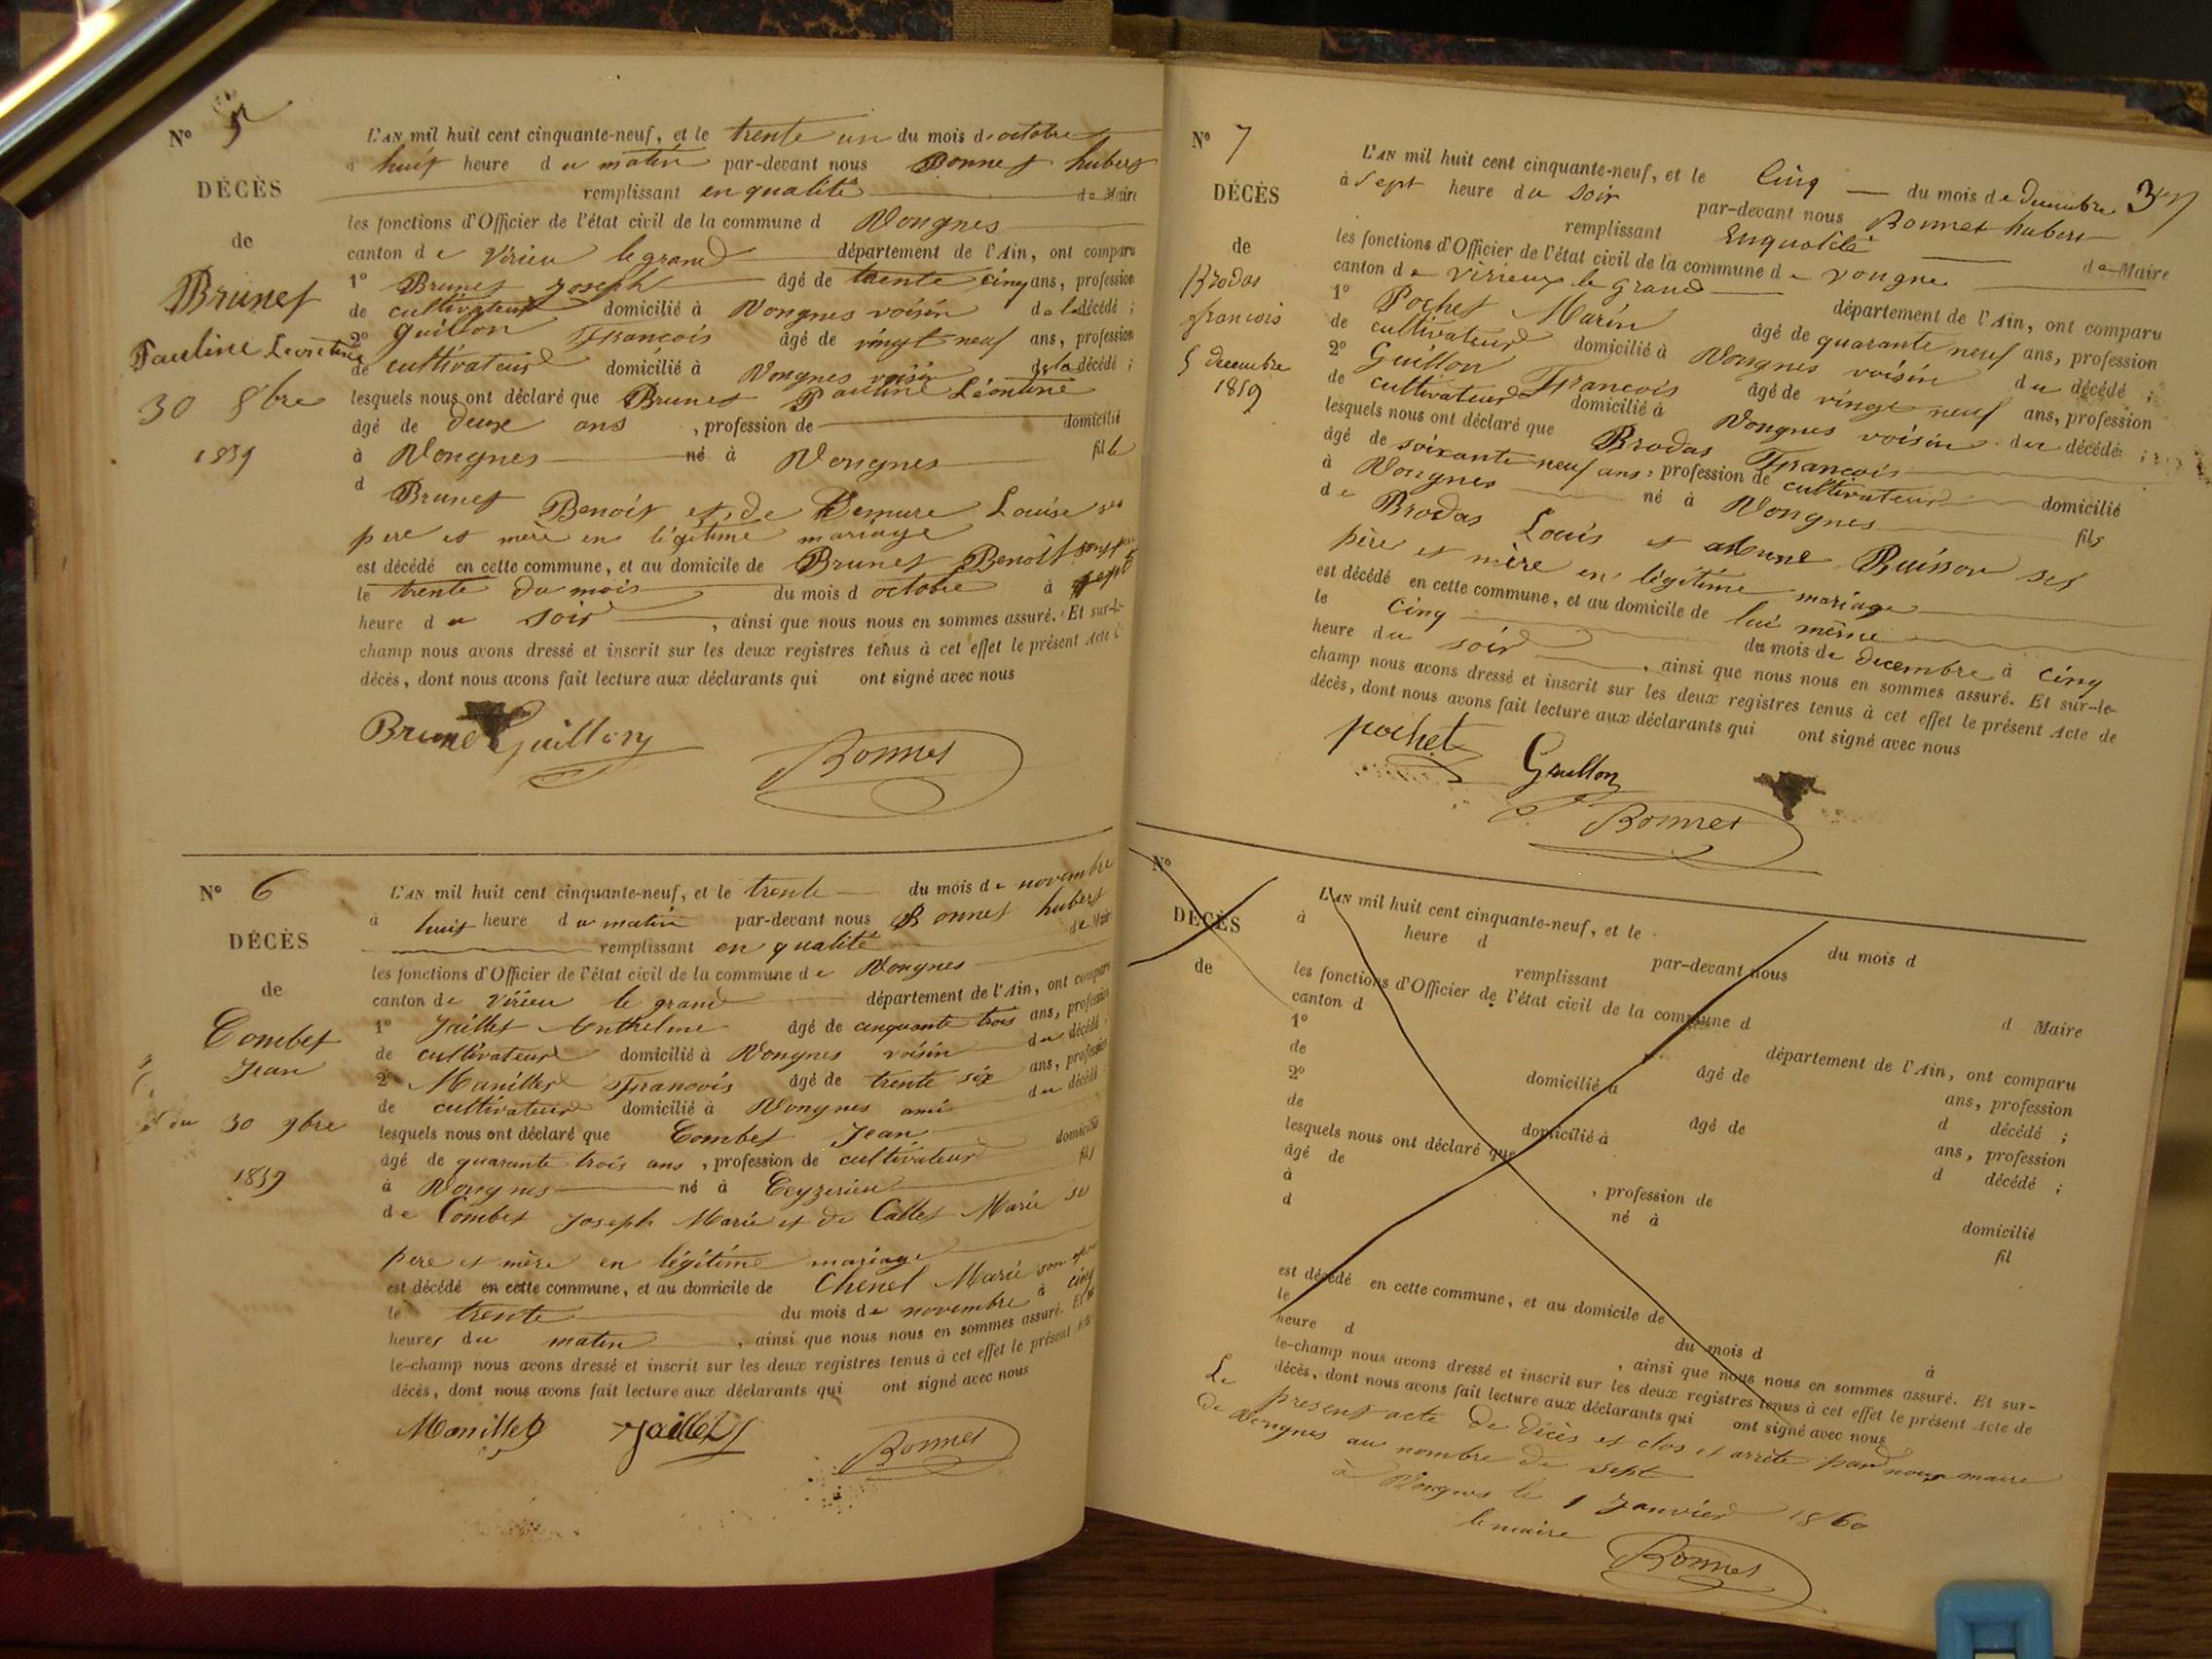 N° 5
DÉCÈS
de
Brunet
Pauline Leontine
30 8bre
1859
L'AN mil huit cent cinquante-neuf, et le trente un du mois d'octobre
à huit heure du matin par-devant nous Bonnet hubert
remplissant en qualité de Maire
les fonctions d'Officier de l'état civil de la commune d Vongnes
canton de Virieu legrand département de l'Ain, ont comparu
1° Brunet Joseph âgé de trente cinq ans, profession
de cultivateur domicilié à Vongnes voisin de la décédé ;
2° Guillon François âgé de vingt neuf ans, profession
de cultivateur domicilié à Vongnes voisin de la décédé ;
lesquels nous ont déclaré que Brunet Pauline Léontine
âgé de deux ans , profession de domicilié
à Vongnes né à Vongnes fille
d Brunet Benoit et de Demure Louise ses
pere et mère en légitime mariage
est décédé en cette commune, et au domicile de Brunet Benoît son pere
le trente du mois du mois d octobre à sept
heure du soir , ainsi que nous nous en sommes assuré. Et sur-le-
champ nous avons dressé et inscrit sur les deux registres tenus à cet effet le présent Acte de
décès, dont nous avons fait lecture aux déclarants qui ont signé avec nous
Brunet Guillon Bonnet
N° 6
DÉCÈS
de
Combet
Jean
du 30 9bre
1859
L'AN mil huit cent cinquante-neuf, et le trente du mois de novembre
à huit heure du matin par-devant nous Bonnet hubert
remplissant en qualité de Maire
les fonctions d'Officier de l'état civil de la commune de Vongnes
canton de Virieu le grand département de l'Ain, ont comparu
1° Jaillet Anthelme âgé de cinquante trois ans, profession
de cultivateur domicilié à Vongnes voisin du décédé ;
2° Manillet François âgé de trente six ans, profession
de cultivateur domicilié à Vongnes ami du décédé
lesquels nous ont déclaré que Combet Jean
âgé de quarante trois ans , profession de cultivateur domicilié
à Vongnes né à Ceyzerieu fils
de Combet Joseph Marie et de Callet Marie ses
pere et mère en légitime mariage
est décédé en cette commune, et au domicile de Chenel Marie son
le trente du mois de novembre à cinq
heures du matin , ainsi que nous nous en sommes assuré. Et sur-
le-champ nous avons dressé et inscrit sur les deux registres tenus à cet effet le présent Acte
décès, dont nous avons fait lecture aux déclarants qui ont signé avec nous
Manillet Jaillet Bonnet
37
N° 7
DÉCÈS
de
Brodas
francois
5 decembre
1859
L'AN mil huit cent cinquante-neuf, et le Cinq du mois de decembre
à Sept heure du Soir par-devant nous Bonnet hubert
remplissant Enqualité de Maire
les fonctions d'Officier de l'état civil de la commune de vongne
canton de virieux le grand département de l'Ain, ont comparu
1° Pochet Marin âgé de quarante neuf ans, profession
de cultivateur domicilié à Vongnes voisin du décédé ;
2° Guillon François âgé de vingt neuf ans, profession
de cultivateur domicilié à Vongnes voisin du décédé ;
lesquels nous ont déclaré que Brodas François
âgé de soixante neuf ans, profession de cultivateur domicilié
à Vongnes né à Vongnes fils
de Brodas Louis et Buisson ses
père et mère en légitime mariage
est décédé en cette commune, et au domicile de lui même
le cinq du mois de decembre à cinq
heure du soir , ainsi que nous nous en sommes assuré. Et sur-le-
champ nous avons dressé et inscrit sur les deux registres tenus à cet effet le présent Acte de
décès, dont nous avons fait lecture aux déclarants qui ont signé avec nous
pochet Guillon
Bonnet
N°
DÉCÈS
de
L'AN mil huit cent cinquante-neuf, et le du mois d
à heure d par-devant nous
remplissant d Maire
les fonctions d'Officier de l'état civil de la commune d
canton d département de l'Ain, ont comparu
1° âgé de ans, profession
de domicilié à d décédé ;
2° âgé de ans, profession
de domicilié à d décédé ;
lesquels nous ont déclaré que
âgé de , profession de domicilié
à né à fil
d
est décédé en cette commune, et au domicile de
le du mois d à
heure d , ainsi que nous nous en sommes assuré. Et sur-
le-champ nous avons dressé et inscrit sur les deux registres tenus à cet effet le présent Acte de
décès, dont nous avons fait lecture aux déclarants qui ont signé avec nous
Le present acte de décès et clos et arrété par nous maire
de Vongnes au nombre de sept
à Vongnes le 1 Janvier 1860
le maire
Bonnet